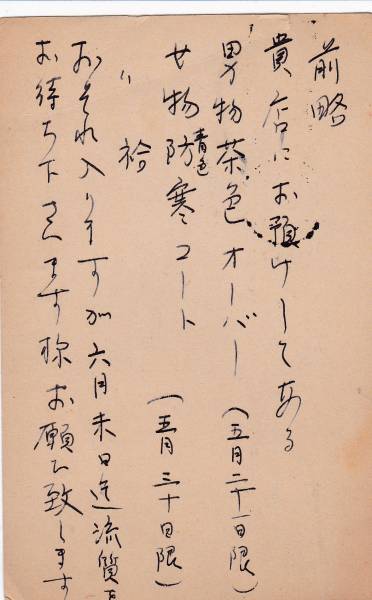 前略
貴店にお預けしてある
男物茶色オーバー(五月二十一日限)
女物防寒コート(五月三十日限)
青色
〃 袷
おそれ入りますが六月末日迄流質
お待ち下さいます様お願い致します